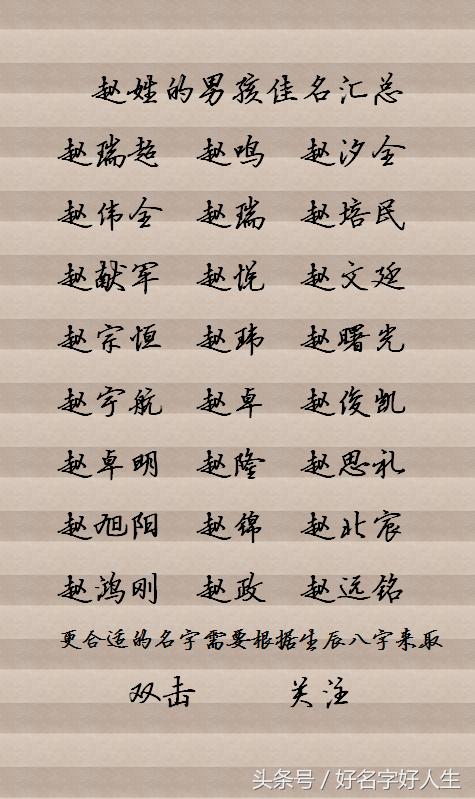 赵姓的男孩佳名汇总
赵瑞超 赵鸣 赵汐全
赵伟全 赵瑞 赵培民
赵献军 赵悦 赵文廷
赵宗恒 赵玮 赵曙光
赵宇航 赵卓 赵俊凯
赵卓明 赵隆 赵思礼
赵旭阳 赵锦 赵北宸
赵鸿刚 赵政 赵远铭
更合适的名字需要根据生辰八字来取
双击 关注
头条号/好名字好人生